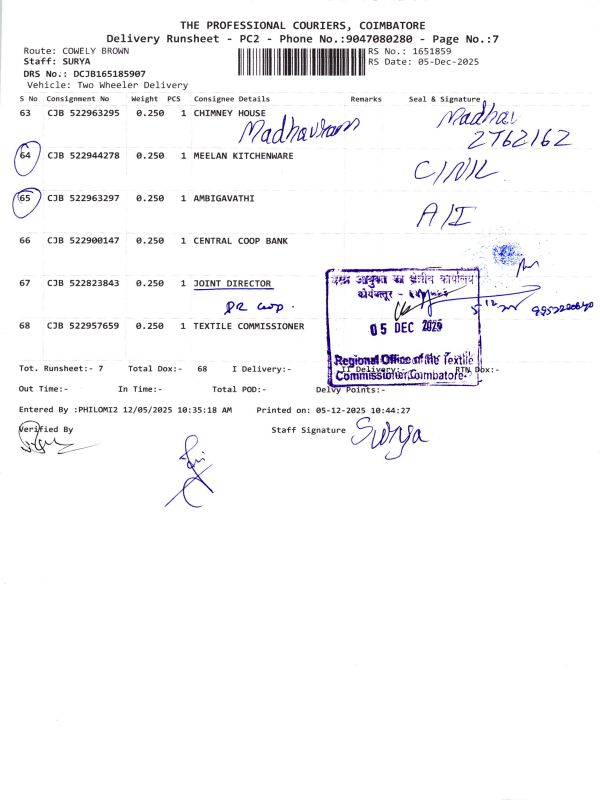 THE PROFESSIONAL COURIERS, COIMBATORE
Delivery Runsheet - PC2 - Phone No.:9047080280 - Page No.:7
Route: COWELY BROWN RS No.: 1651859
Staff: SURYA RS Date: 05-Dec-2025
DRS No.: DCJB165185907
Vehicle: Two Wheeler Delivery
S No Consignment No Weight PCS Consignee Details Remarks Seal & Signature
63 CJB 522963295 0.250 1 CHIMNEY HOUSE Madhav
Madhavram 2762162
64 CJB 522944278 0.250 1 MEELAN KITCHENWARE
65 CJB 522963297 0.250 1 AMBIGAVATHI A/I
66 CJB 522900147 0.250 1 CENTRAL COOP BANK
67 CJB 522823843 0.250 1 JOINT DIRECTOR
68 CJB 522957659 0.250 1 TEXTILE COMMISSIONER
का क्षेत्रीय कार्यालय
05 DEC 2025
Regional Office of the Textile
Commissioner, Coimbatore-
Tot. Runsheet:- 7 Total Dox:- 68 I Delivery:- II Delivery:- RTN Dox:-
Out Time:- In Time:- Total POD:- Delvy Points:-
Entered By :PHILOMI2 12/05/2025 10:35:18 AM Printed on: 05-12-2025 10:44:27
Verified By Staff Signature Surya